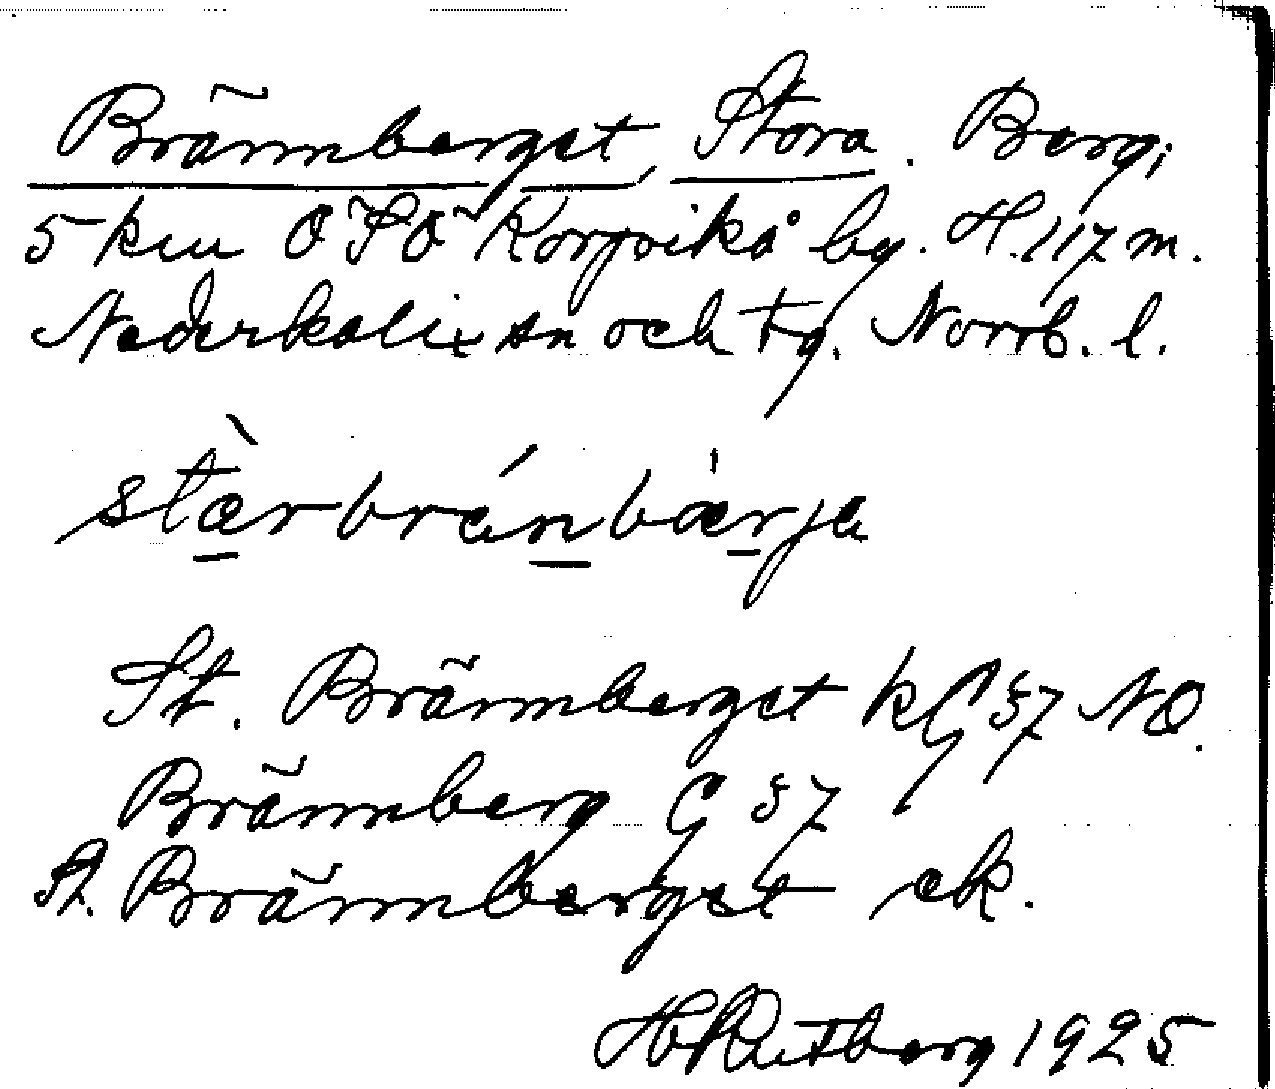 Brännberget, Stora. Berg;
5 km ÖSÖ Korpikå by. H. 117 m.
Nederkalix sn och tg. Norrb. l.
stæ̀r bránbærja
St. Brännberget kG 57 NO.
Brännberg G 57
St. Brännberget ek.
H Rutberg 1925